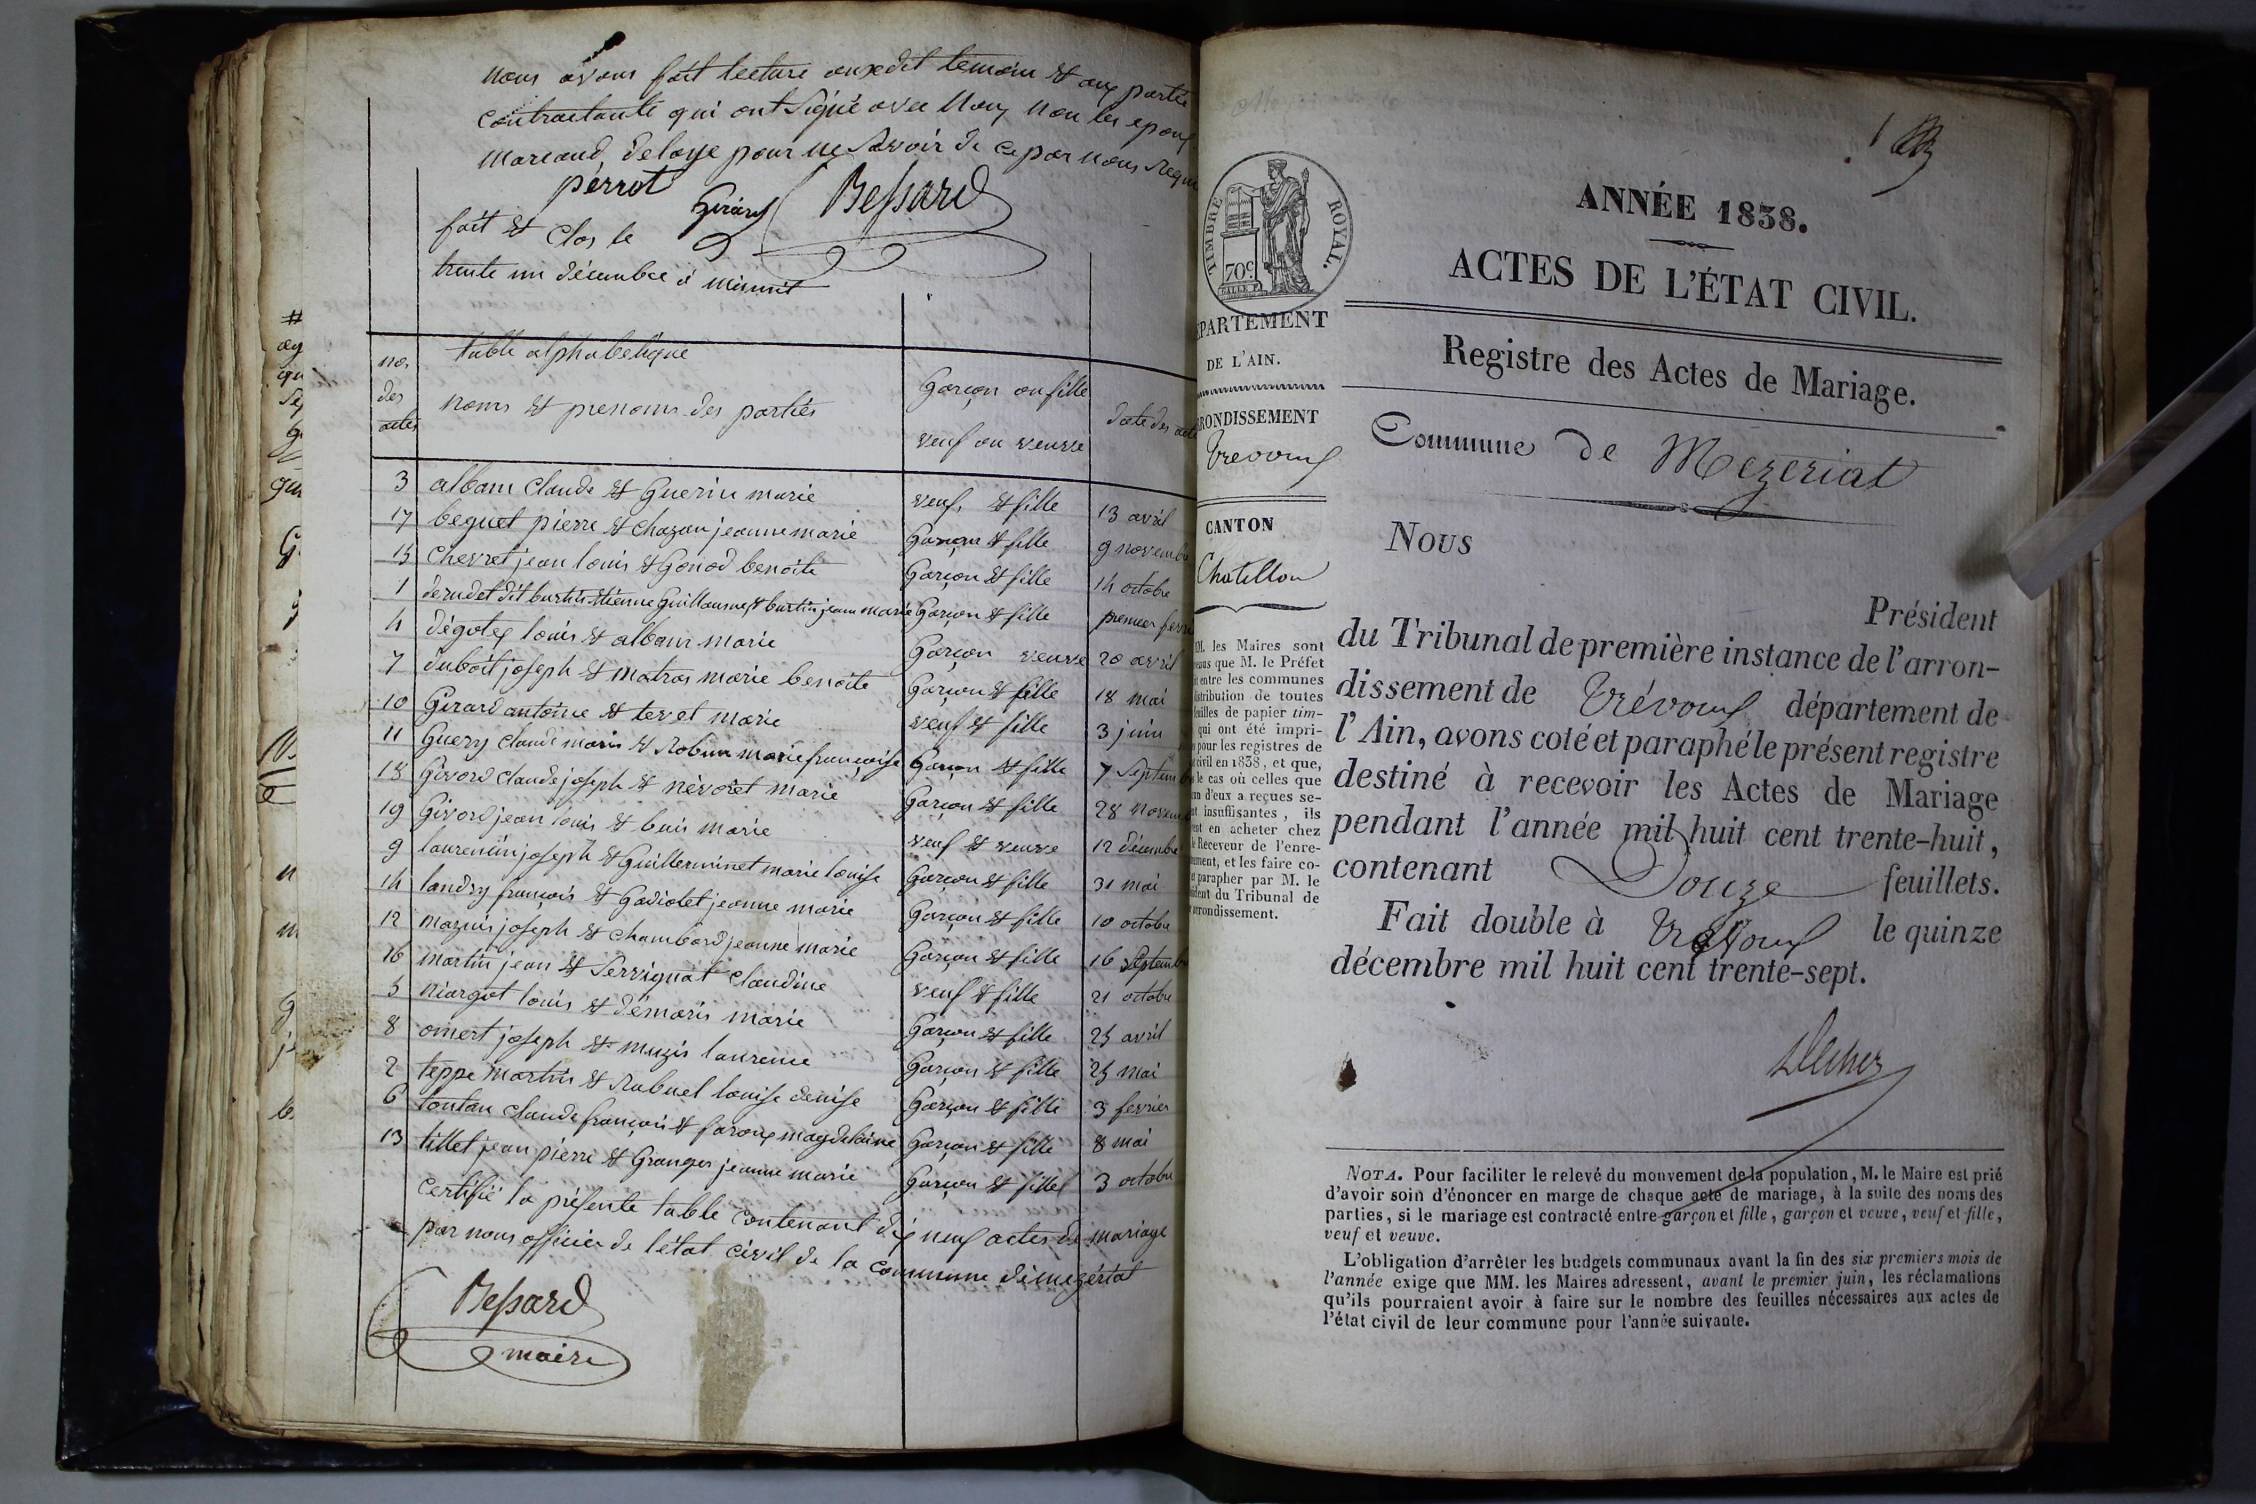 nous avons fait lecture auxdit temoin et aux partie
contractante qui ont signé avec Nous non les epoux
marcaud, delaye pour ne savoir de ce par nous requi
perrot Girard Bessard
fait et clos le
trente un décembre à minuit
nos des actes
table alphabetique
noms et prenoms des parties
Garçon ou fille
veuf ou veuve
date des acte
3 alban claude et Guerin marie veuf, et fille 13 avril
17 beguet pierre et chazau jeanne marie Garçon et fille 9 novembre
15 chevret jean louis et Gonod benoite Garçon et fille 14 octobre
1 dérudet dit burtin étienne Guillaume et burtin jeane marie Garçon et fille premier fevri
4 dégotex louis et alban marie Garçon veuve 20 avril
7 duboit joseph et matras marie benoite Garçon et fille 18 mai
10 Girard antoine et tevet marie veuf et fille 3 juin
11 Guery claude marie et Robin marie françoise Garçon et fille 7 Septem
18 Givord claude joseph et névoret marie Garçon et fille 28 Novem
19 Givord jean louis et buis marie veuf et veuve 12 décembre
9 laurencin joseph et Guillerminet marie louise Garçon et fille 31 mai
14 landry françois et Gadiolet jeanne marie Garçon et fille 10 octobre
12 mazuis joseph et chambard jeanne marie Garçon et fille 16 Septemb
16 martin jean et Perrignat claudine veuf et fille 21 octobre
5 niargot louis et démaris marie Garçon et fille 25 avril
8 omert joseph et muzis laurence Garçon et fille 25 mai
2 teppe martin et Rabuel louise denise Garçon et fille 3 fevrier
6 toutan claude françois et faroux magdelaine Garçon et fille 8 mai
13 tillet jean pierre et Granger jeanne marie Garçon et fille 3 octobre
certifié la présente table contenant dix neuf actes de mariage
par nous officier de l'état civil de la commune de mezériat
Bessard
maire
1
TIMBRE ROYAL.
70c
ANNÉE 1838.
ACTES DE L'ÉTAT CIVIL.
Registre des Actes de Mariage.
Commune de Mezeriat
PARTEMENT
DE L'AIN.
RONDISSEMENT
Trevoux
CANTON
Chatillon
M. les Maires sont
enus que M. le Préfet
it entre les communes
stribution de toutes
feuilles de papier tim-
qui ont été impri-
pour les registres de
civil en 1838, et que,
le cas où celles que
un d'eux a reçues se-
nt insuffisantes, ils
ent en acheter chez
le Receveur de l'enre-
ment, et les faire co-
et parapher par M. le
ident du Tribunal de
arrondissement.
Nous
Président
du Tribunal de première instance de l'arron-
dissement de Trévoux département de
l'Ain, avons coté et paraphé le présent registre
destiné à recevoir les Actes de Mariage
pendant l'année mil huit cent trente-huit,
contenant Douze feuillets.
Fait double à Trévoux le quinze
décembre mil huit cent trente-sept.
NOTA. Pour faciliter le relevé du mouvement de la population, M. le Maire est prié
d'avoir soin d'énoncer en marge de chaque acte de mariage, à la suite des noms des
parties, si le mariage est contracté entre garçon et fille, garçon et veuve, veuf et fille,
veuf et veuve.
L'obligation d'arrêter les budgets communaux avant la fin des six premiers mois de
l'année exige que MM. les Maires adressent, avant le premier juin, les réclamations
qu'ils pourraient avoir à faire sur le nombre des feuilles nécessaires aux actes de
l'état civil de leur commune pour l'année suivante.